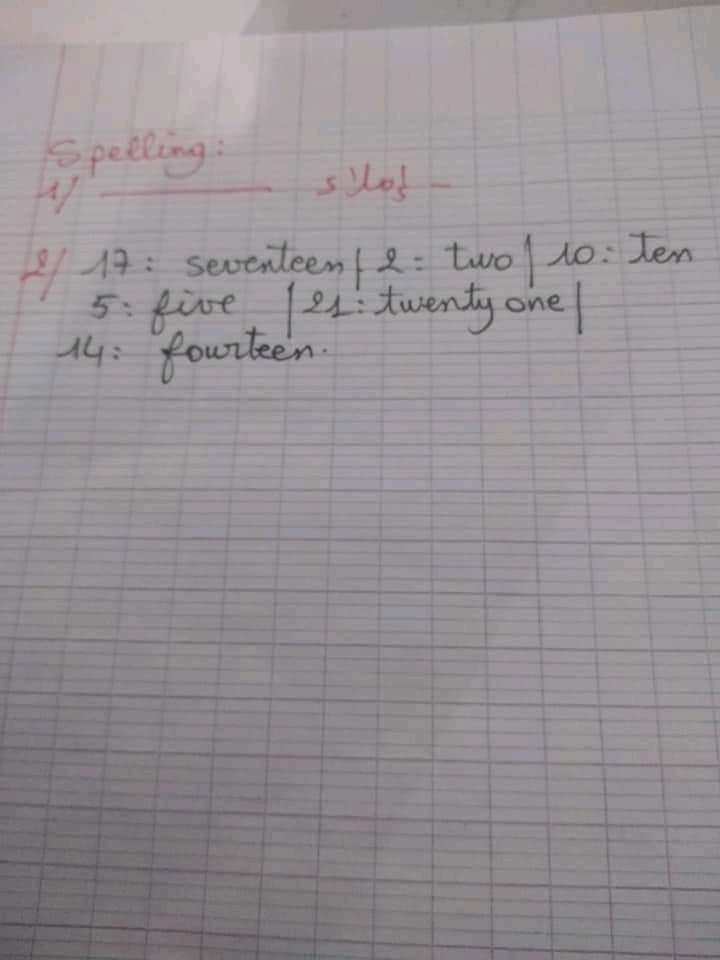 Spelling:
1/ ———
2/ 17: seventeen | 2: two | 10: ten
5: five | 21: twenty one |
14: fourteen.